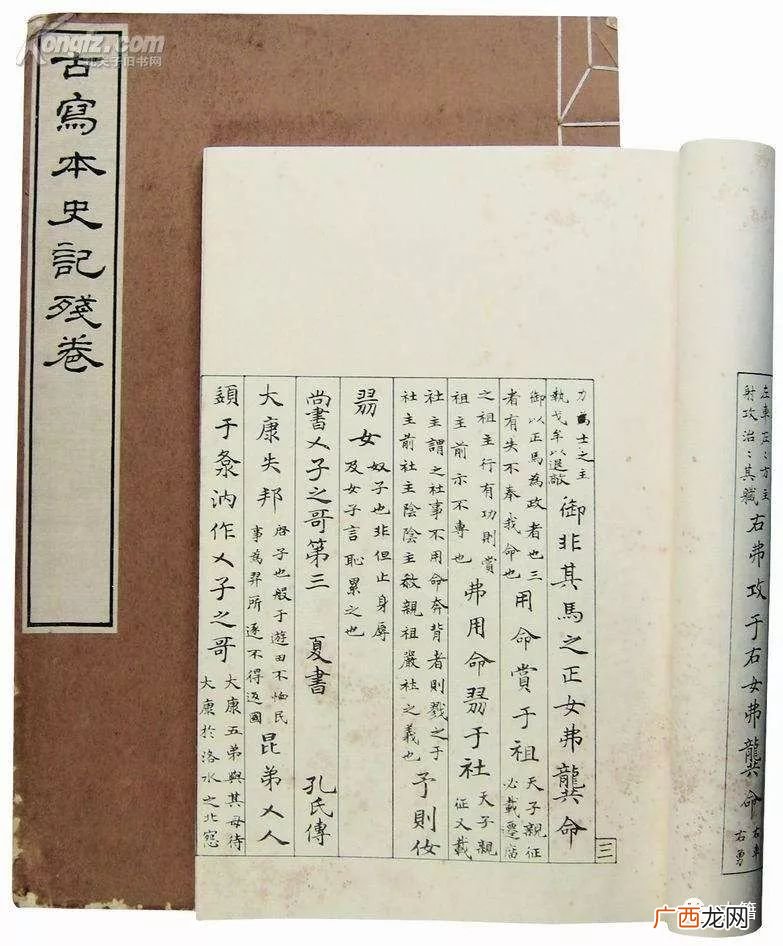 Kongfz.com
孔夫子旧书网
古寫本史記殘卷
左車左〻方主
射攻治〻其職
右弗攻于右女弗龔命
右車
右勇
力為士之主
執戈矛以退敵
御非其馬之正女弗龔命
御以正馬為政者也三
者有失不奉我命也
用命賞于祖
天子親征
必載遷庿
之祖主行有功則賞
祖主前示不專也
弗用命翏于社
天子親
征又載
社主謂之社事不用命奔背者則戮之于
社主前社主陰陰主殺親祖嚴社之義也
予則伩
翏女
奴子也非但止身辱
及女子言恥累之也
尚書乂子之哥第三
夏書
孔氏傳
大康失邦
啓子也般于遊田不恤民
事為羿所逐不得返國
昆弟乂人
汭作乂子之哥
大康五弟與其母待
大康於洛水之北
三
广西龙网